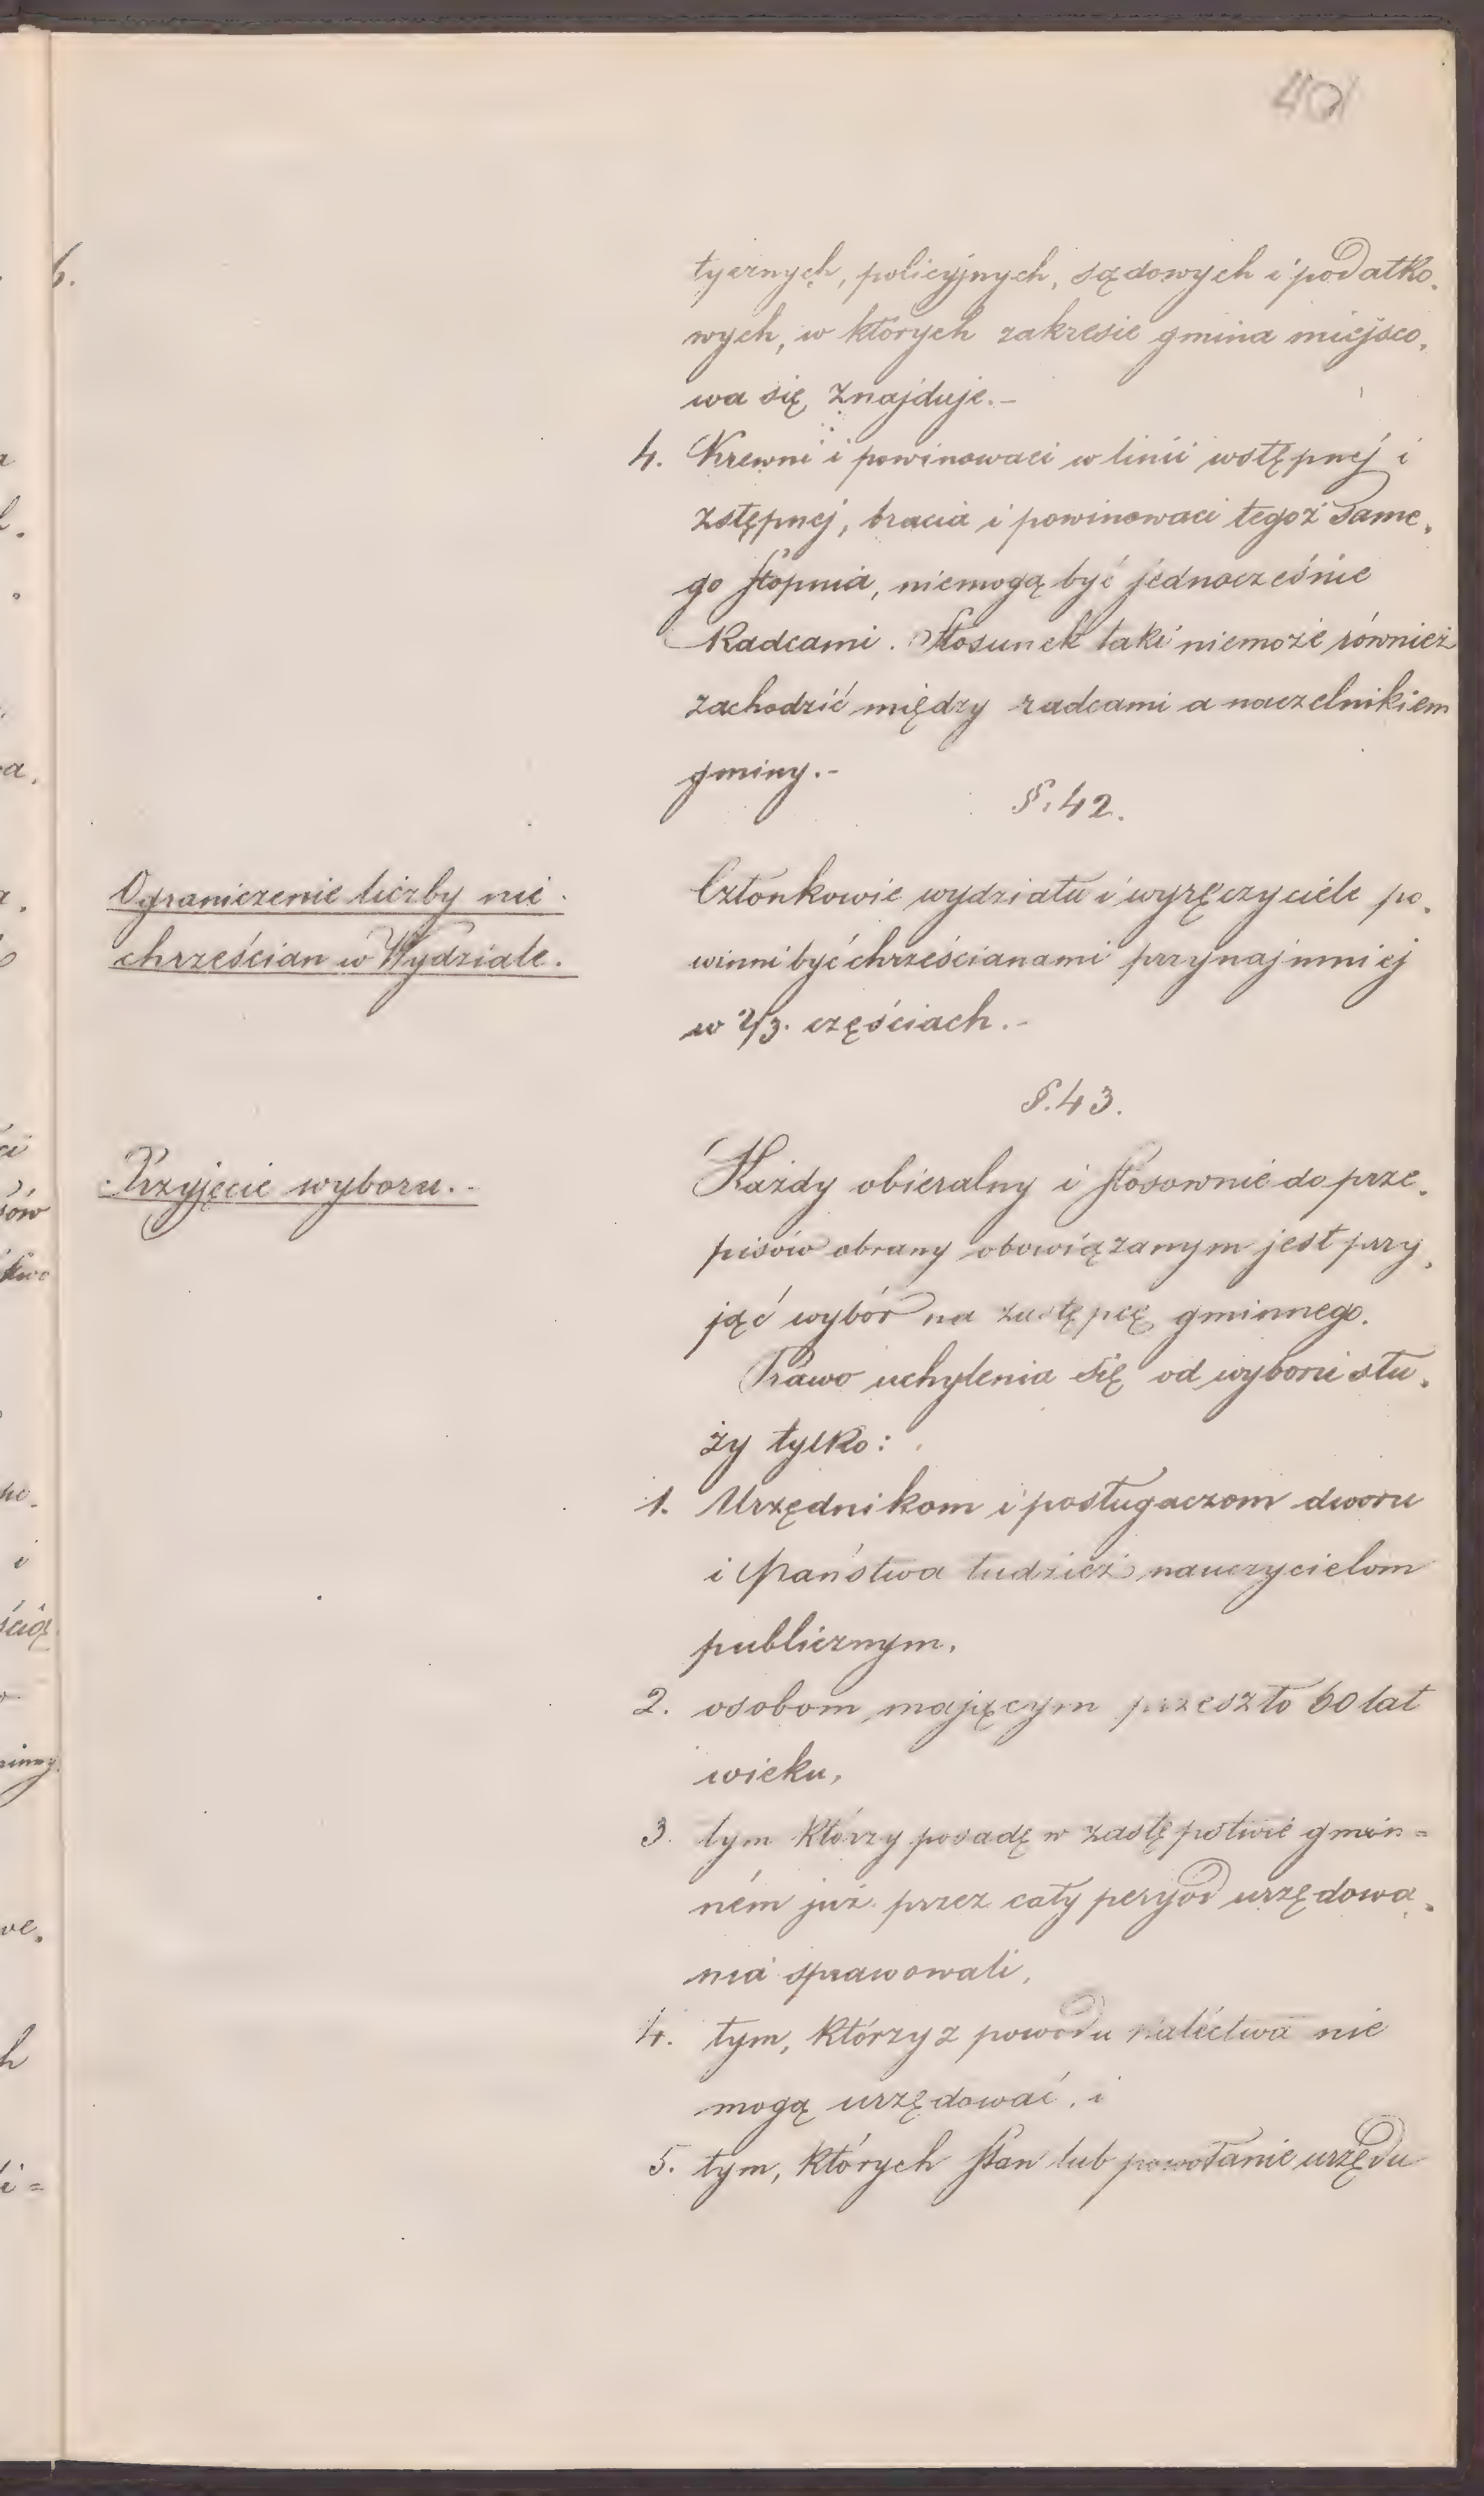 tycznych, policyjnych, sądowych i podatko.
wych, w których zakresie gmina miejsco.
wa się znajduje.-
4. Krewni i powinowaci w linii wstępnej i
zstępnej, bracia i powinowaci tegoż same.
go stopnia, niemogą być jednocześnie
Radcami. Stosunek taki niemoże również
zachodzić między radcami a naczelnikiem
gminy.-
§. 42.
Ograniczenie liczby nie.
chrześcian w Wydziale.
Członkowie wydziału i wyręczyciele po.
winni być chrześcianami przynajmniej
w 2/3. częściach.-
§. 43.
Przyjęcie wyboru.-
Każdy obieralny i stosownie do prze.
pisów obrany obowiązanym jest przy.
jąć wybór na zastępcę gminnego.
Prawo uchylenia się od wyboru słu.
ży tylko:
1. Urzędnikom i posługaczom dworu
i Państwa tudzież nauczycielom
publicznym,
2. osobom mającym przeszło 60 lat
wieku,
3. tym którzy posadę w zastępstwie gmin=
ném już przez cały peryod urzędowa.
nia sprawowali,
4. tym, którzy z powodu kalectwa nie
mogą urzędować, i
5. tym, których stan lub powołanie urzędu